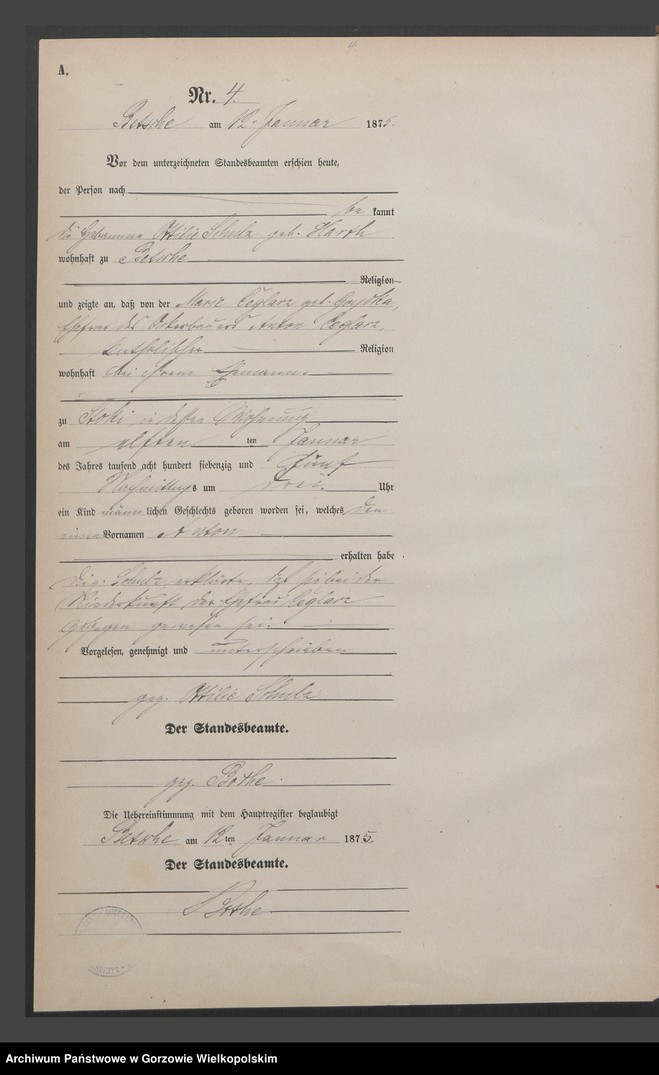 4.
A.
Nr. 4.
Betsche am 12. Januar 1875.
Vor dem unterzeichneten Standesbeamten erschien heute,
der Person nach
be kannt
die Hebamme Ottilie Schulz geb.
wohnhaft zu Betsche
Religion
und zeigte an, daß von der Marie Ceglarz geb.
Ehefrau des Anton Ceglarz,
katholischer Religion
wohnhaft bei ihrem Ehemanne
zu Stoki in dessen Wohnung
am elften ten Januar
des Jahres tausend acht hundert siebenzig und fünf
Nachmittags um drei Uhr
ein Kind männlichen Geschlechts geboren worden sei, welches den
einen Vornamen Anton
erhalten habe.
Schulz erklärte, daß sie bei der
Niederkunft der Ehefrau Ceglarz
zugegen gewesen sei.
Vorgelesen, genehmigt und unterschrieben
gez. Ottilie Schulz
Der Standesbeamte.
gez. Bothe.
Die Uebereinstimmung mit dem Hauptregister beglaubigt
Betsche am 12 ten Januar 1875.
Der Standesbeamte.
Bothe
Archiwum Państwowe w Gorzowie Wielkopolskim